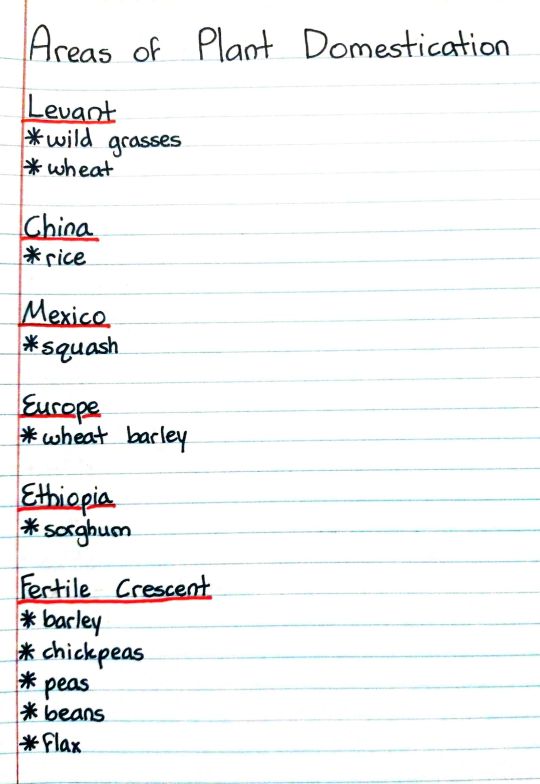 Areas of Plant Domestication
Levant
*wild grasses
*wheat
China
*rice
Mexico
*squash
Europe
*wheat barley
Ethiopia
*sorghum
Fertile Crescent
*barley
*chickpeas
*peas
*beans
*flax